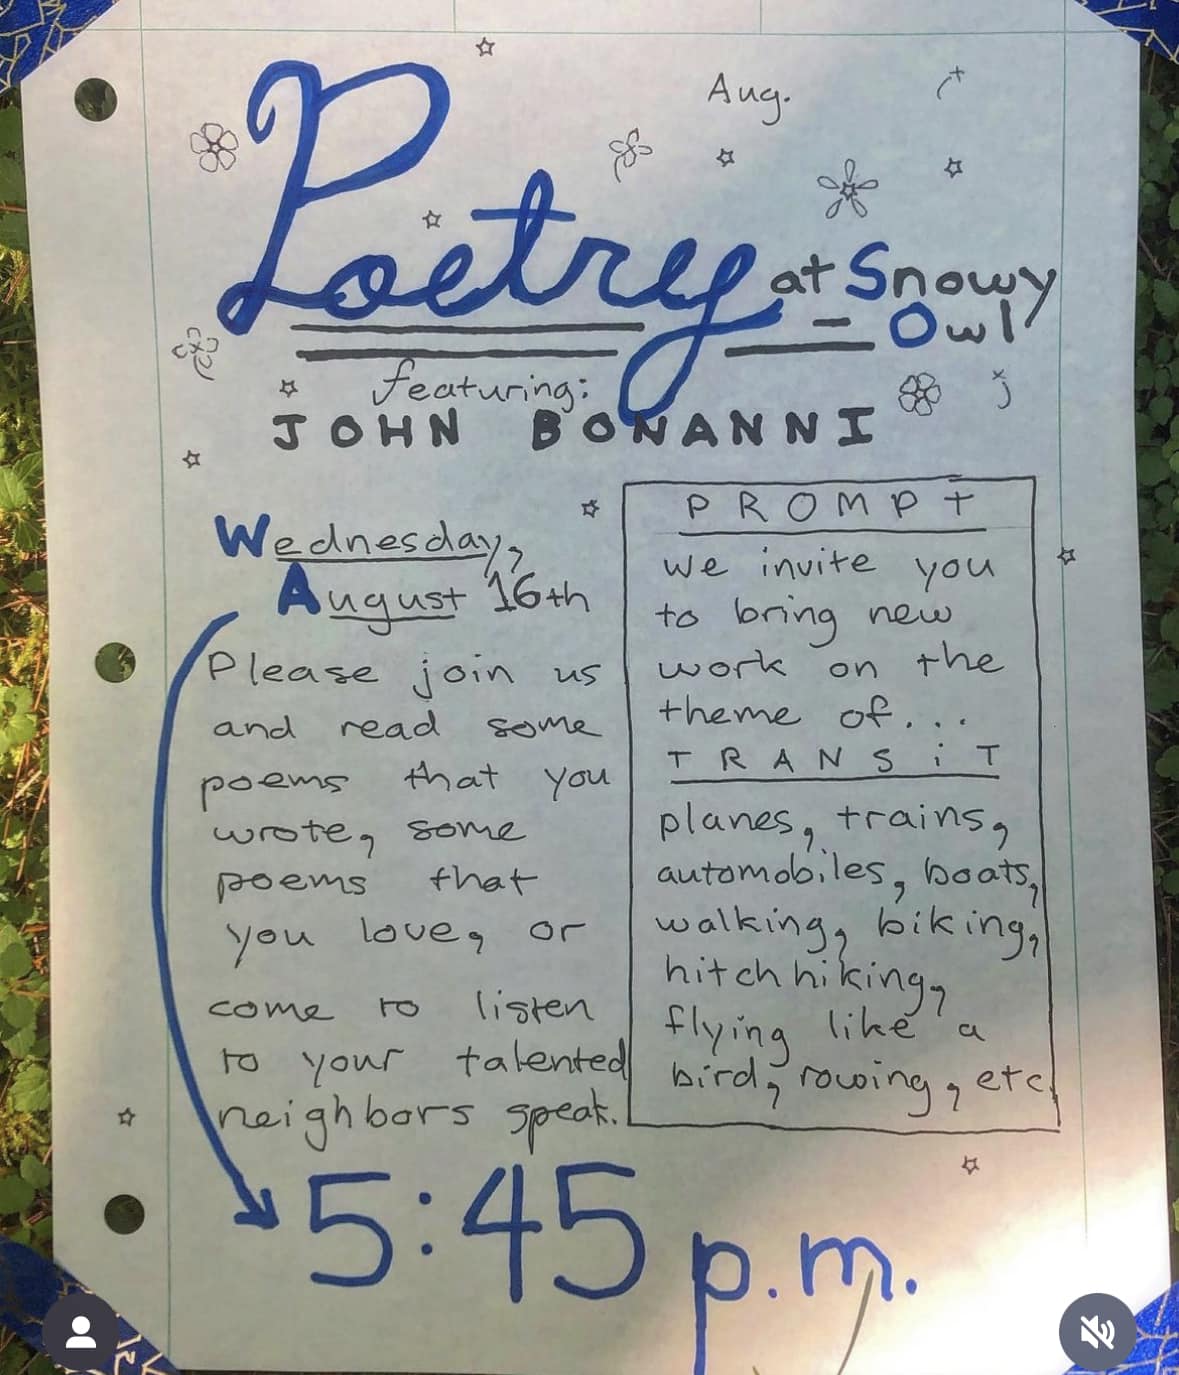 Aug.
Poetry at Snowy
Owl
featuring:
JOHN BONANNI
Wednesday,
August 16th
Please join us
and read some
poems that you
wrote, some
poems that
you love, or
come to listen
to your talented
neighbors speak.
PROMPT
We invite you
to bring new
work on the
theme of...
TRANSiT
planes, trains,
automobiles, boats,
walking, biking,
hitchhiking,
flying like a
bird, rowing, etc.
5:45 p.m.